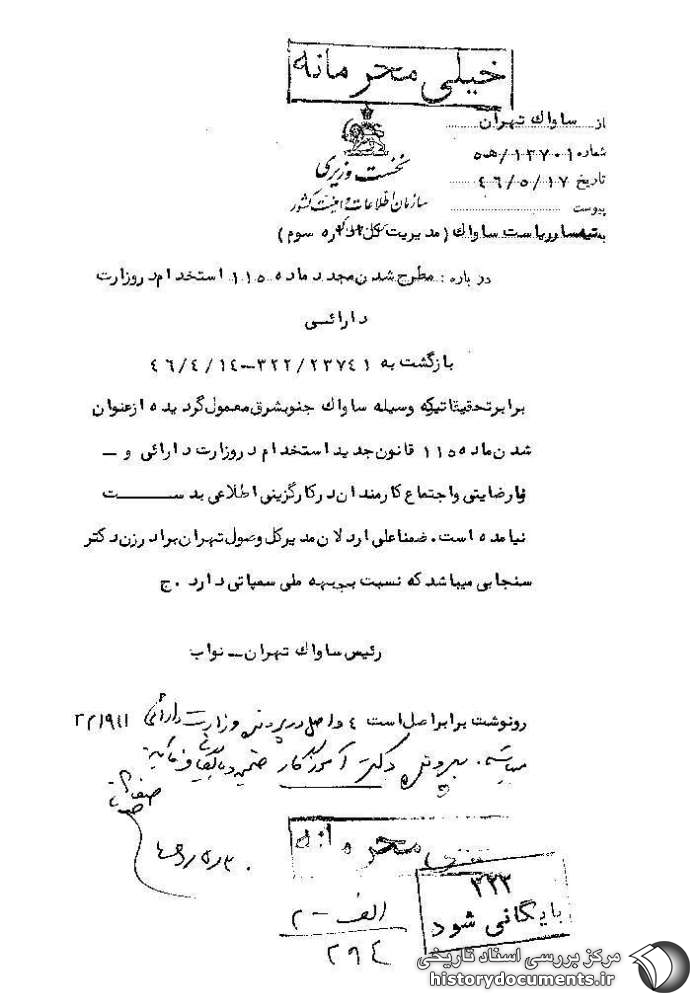 خیلی محرمانه
از ساواك تهران
شماره ۱۳۷۰۱/ﻫ۵
تاریخ ۴۶/۵/۱۷
پیوست
نخست وزیری
سازمان اطلاعات و امنیت کشور
ریاست ساواك (مدیریت کل اداره سوم)
درباره: مطرح شدن مجدد ماده ۱۱۵ استخدام در وزارت
دارائی
بازگشت به ۳۲۲/۲۳۷۴۱-۴۶/۴/۱۴
برابر تحقیقاتیکه وسیله ساواك جنوبشرق معمول گردیده از عنوان
شدن ماده ۱۱۵ قانون جدید استخدام در وزارت دارائی و ـ
نارضایتی و اجتماع کارمندان در کارگزینی اطلاعی بدست
نیامده است. ضمنا علی اردلان مدیر کل وصول تهران برادر زن دکتر
سنجابی میباشد که نسبت بجبهه ملی سمپاتی دارد. ج
رئیس ساواك تهران ـ نواب
رونوشت برابر اصل است ۴ و اصل در پرونده وزارت دارائی
میباشد. پرونده دکتر آموزگار ضمیمه و بایگانی
محرمانه
۳۲۲
بایگانی شود
الف-۲
۲۹۴
مرکز بررسی اسناد تاریخی
historydocuments.ir